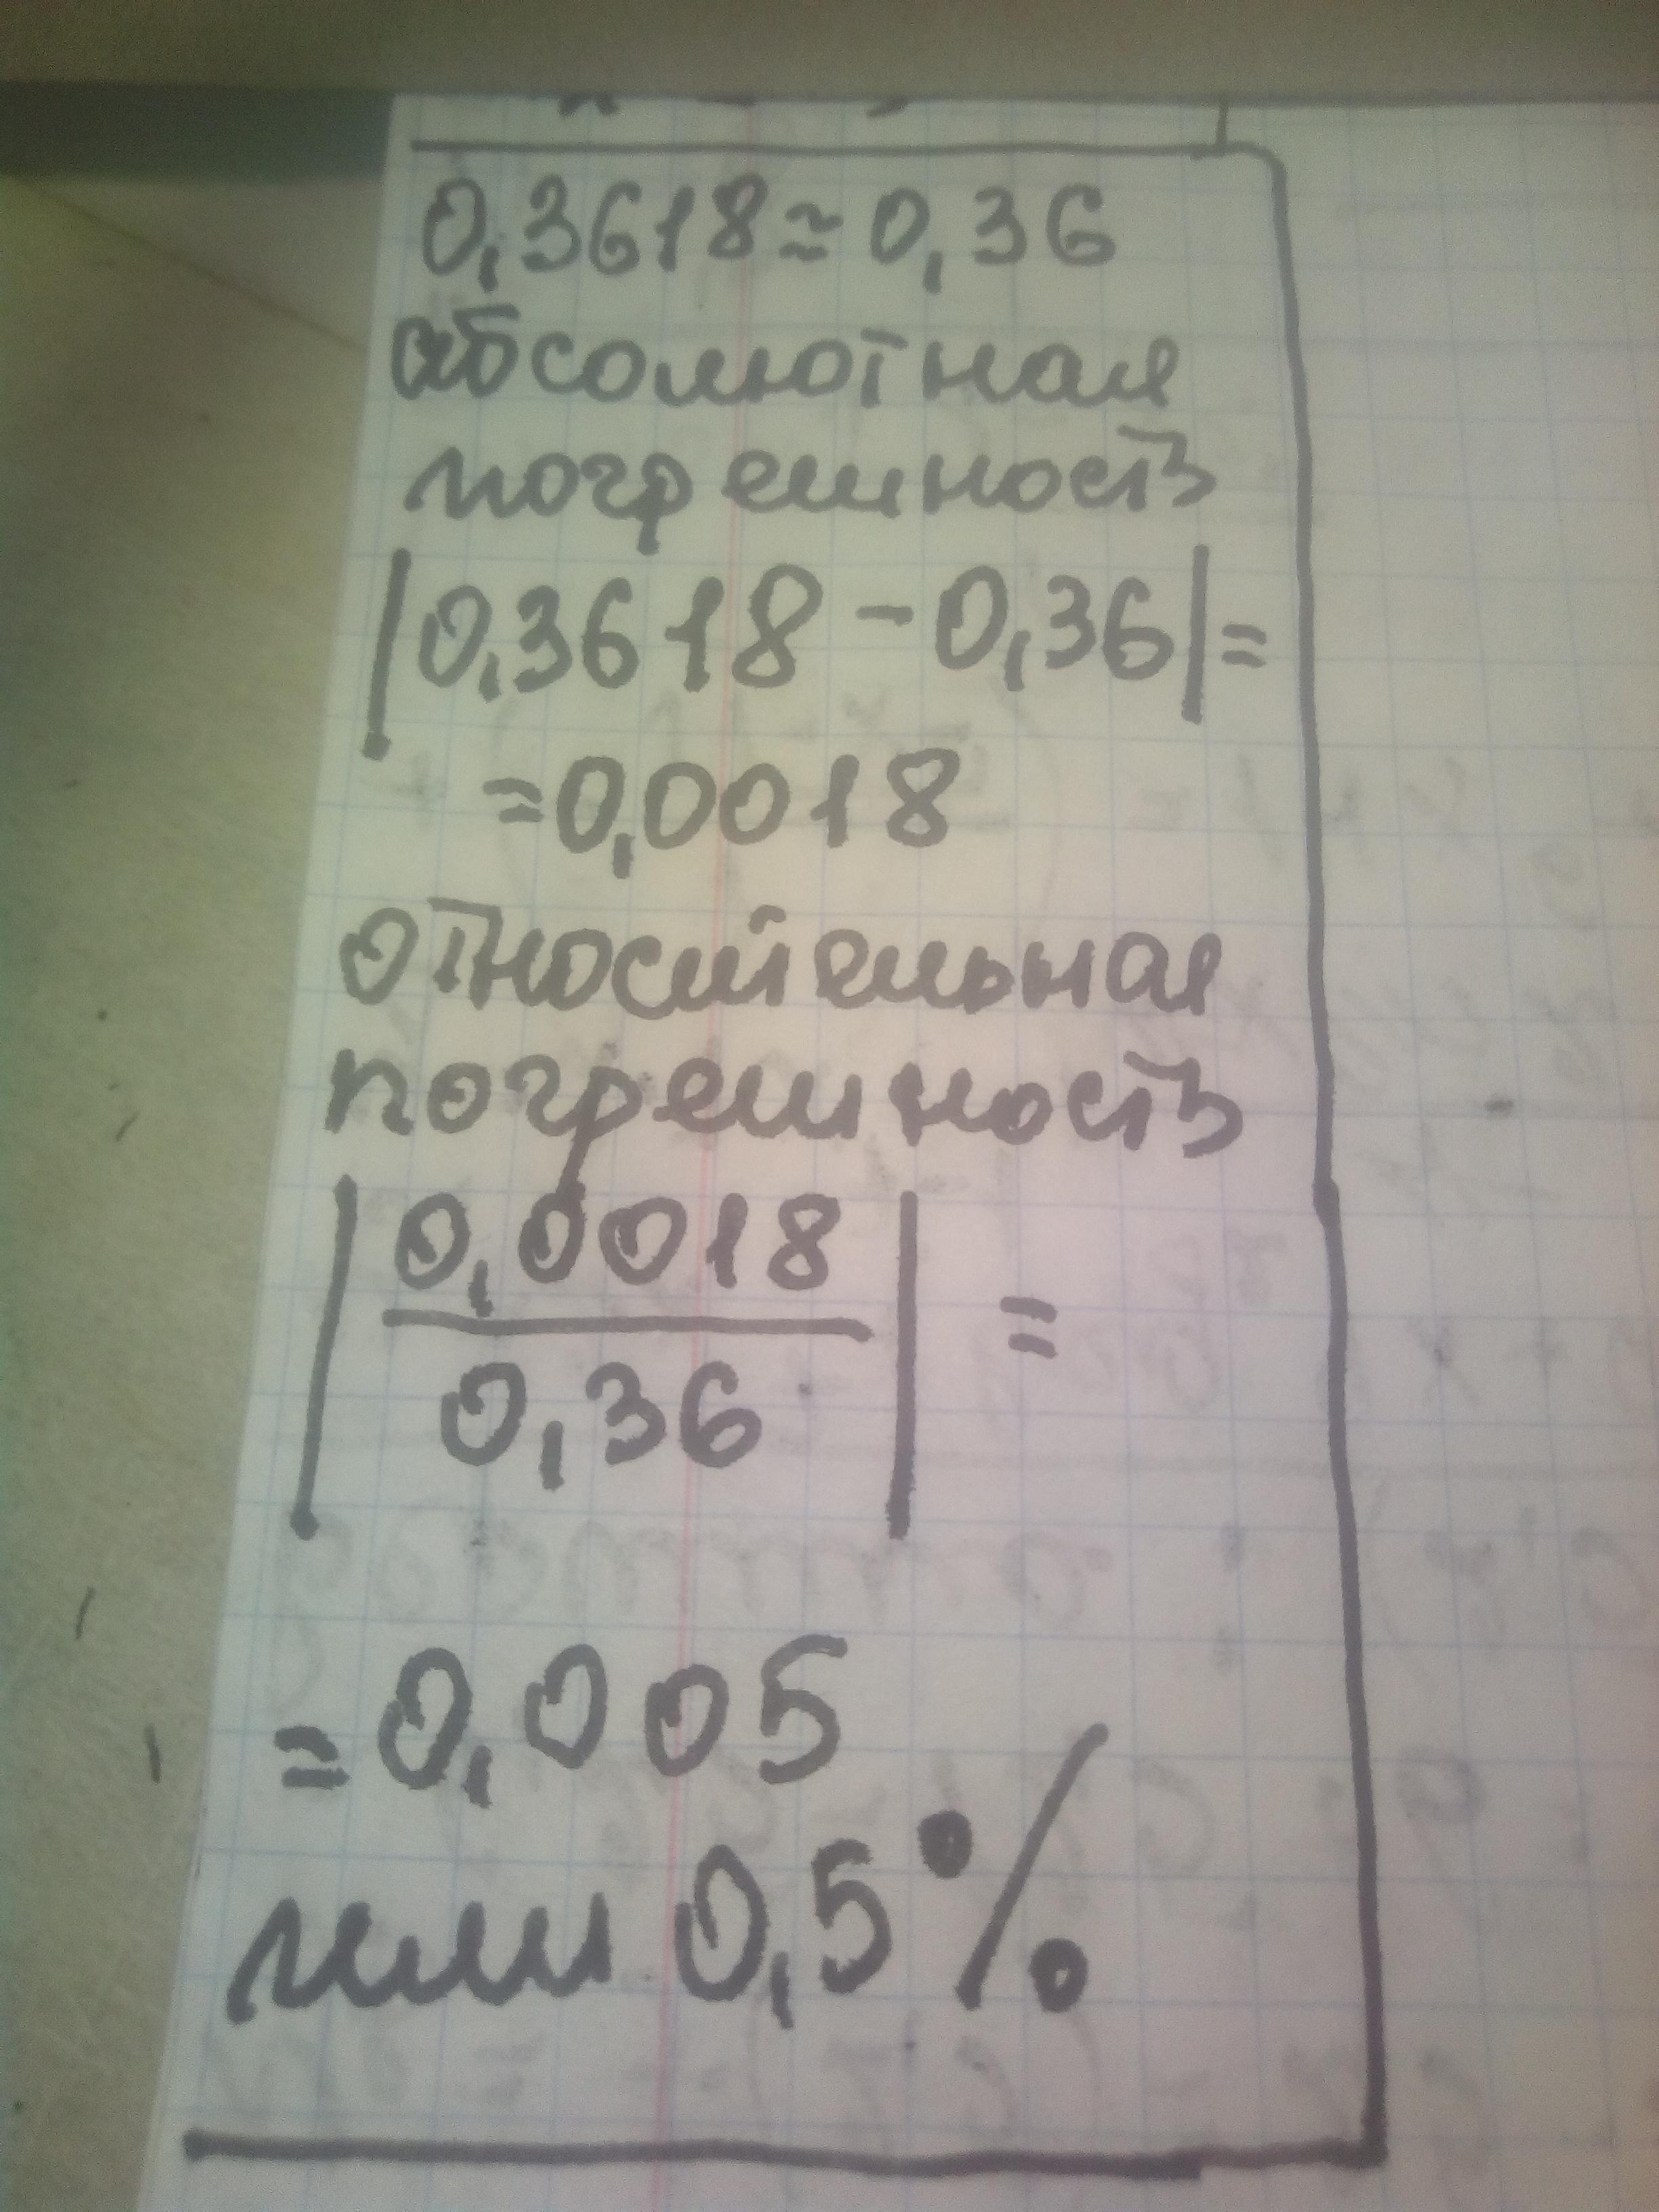 0,3618≈0,36
абсолютная
погрешность
|0,3618-0,36|=
=0,0018
относительная
погрешность
|0,0018
0,36| =
=0,005
или 0,5%